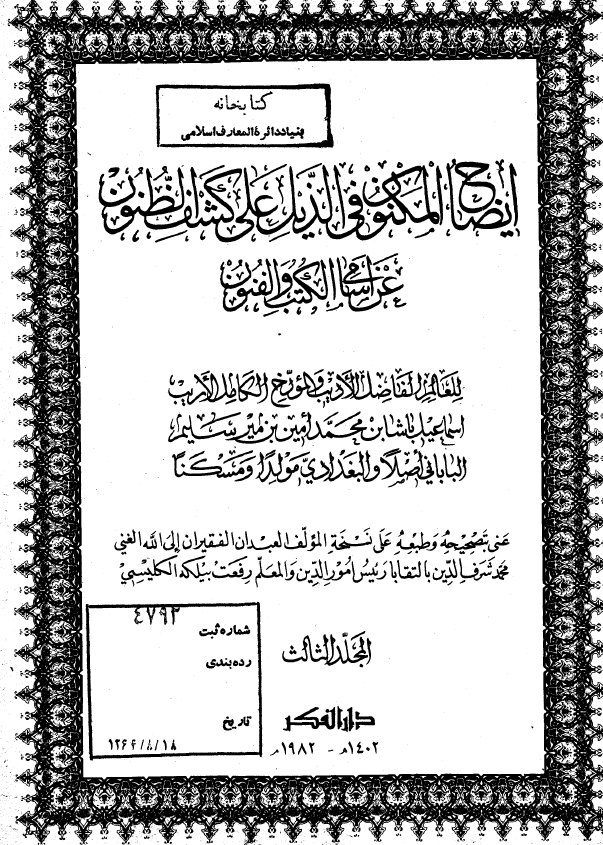 كتابخانه
بنیاد دائرة المعارف اسلامی
إيضاح المكنون في الذيل على كشف الظنون
عن أسامي الكتب والفنون
للعالم الفاضل الأديب والمؤرخ الكامل الأريب
اسماعيل باشا بن محمد أمين بن مير سليم
الباباني أصلا والبغدادي مولدا ومسكنا
عنى بتصحيحه وطبعه على نسخة المؤلف العبدان الفقيران إلى الله الغني
محمد شرف الدين بالتقايا رئيس أمور الدين والمعلم رفعت بيلكه الكليسي
المجلد الثالث
دار الفكر
١٤٠٢هـ - ١٩٨٢م
٤٧٩٣
شماره ثبت
رده بندی
تاریخ